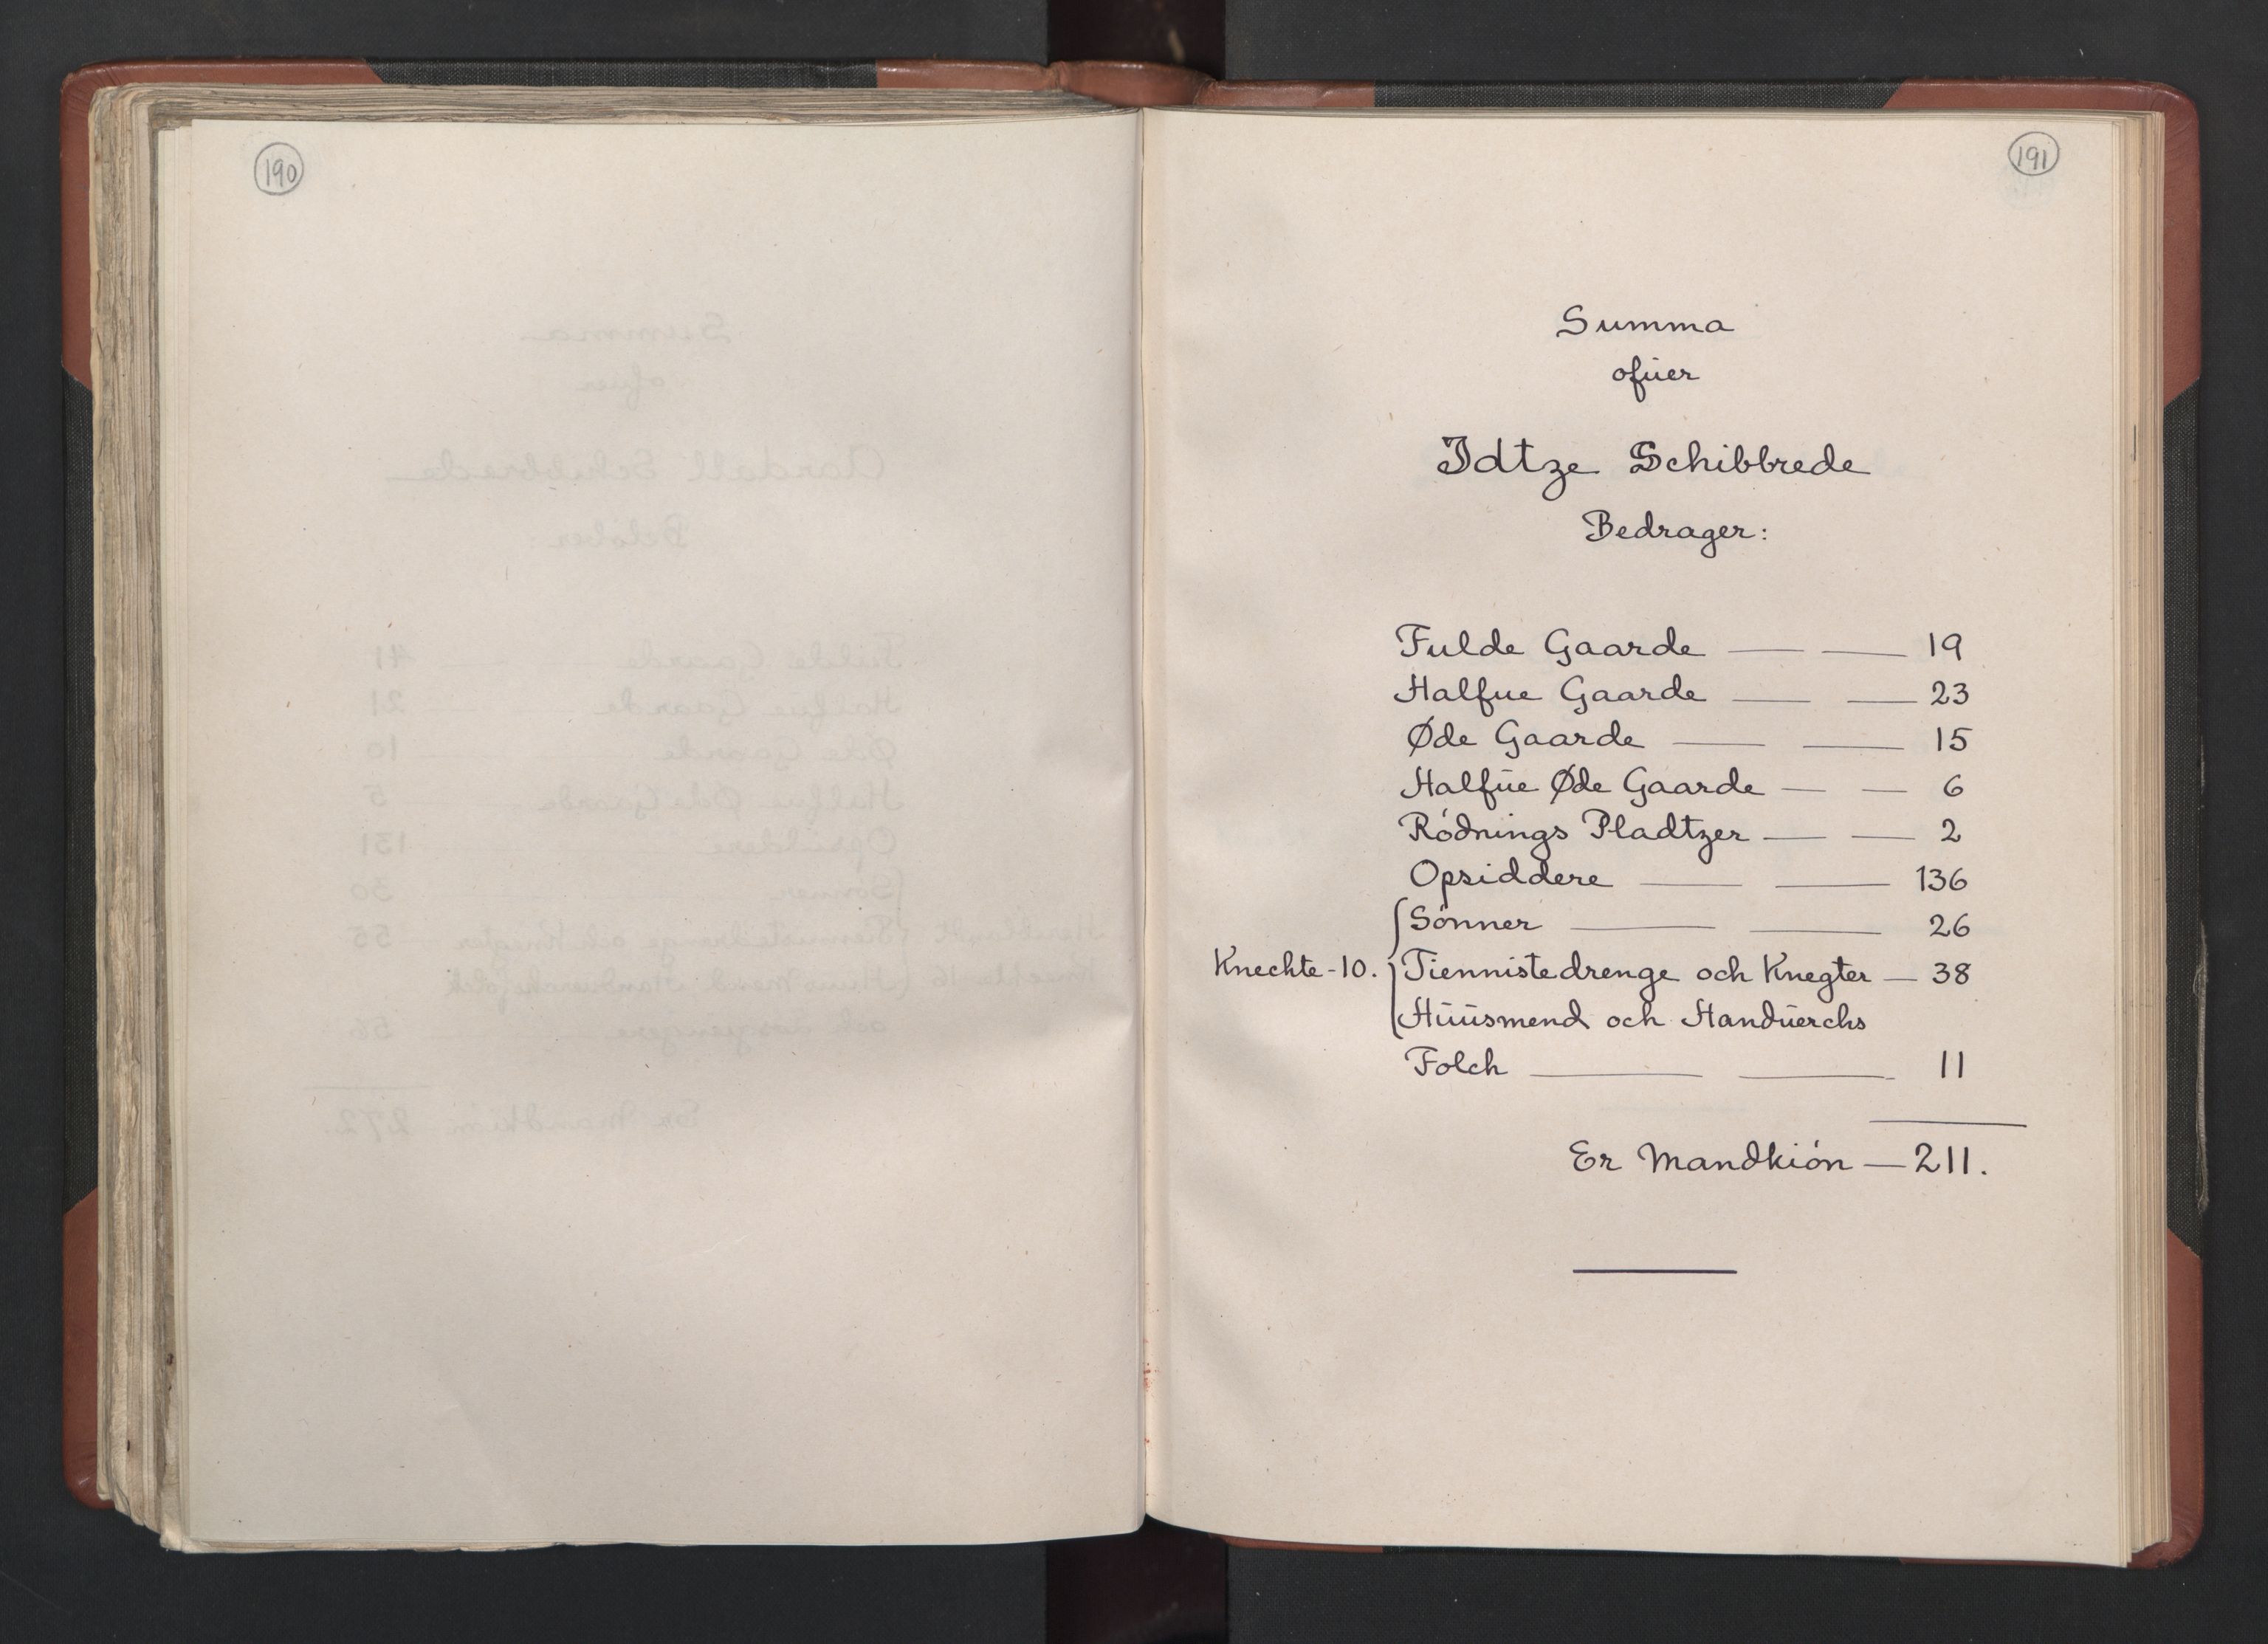 190
191
Summa
ofüer
Idtze Schibbrede
Bedrager:
Fulde Gaarde — — 19
Halfue Gaarde — — 23
Øde Gaarde — — 15
Halfüe Øde Gaarde — — 6
Ródnings Pladtzer — — 2
Opsiddere — — 136
Sónner — — 26
Knechte - 10. Tiennistedrenge och Knegter — 38
Húúsmend och Handüerchs
Folch — — 11
Er Mandkión — 211.